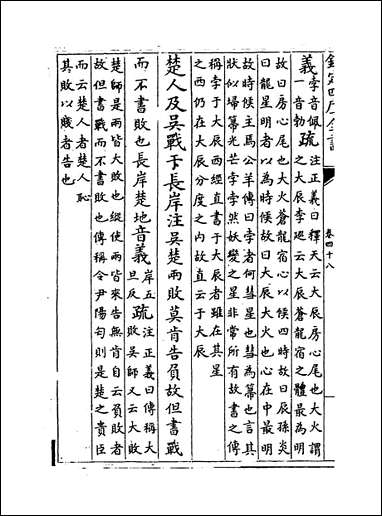 欽定四庫全書 卷四十八
義孛音佩疏注正義曰釋天云大辰房心尾也大火謂
一音勃之大辰李廵云大辰蒼龍宿之體最為明
故曰房心尾也大火蒼龍宿心以候四時故曰辰孫炎
曰龍星明者以為時候故曰大辰大火也心在中最明
故時候主焉公羊傳曰孛者何彗星也彗為菷也言其
狀似埽菷光芒孛孛然妖變之星非常所有故書之傳
稱孛于大辰西經直書于大辰者雖在其星
之西仍在大辰分度之内故直云于大辰
楚人及吳戰于長岸注吳楚兩敗莫肯告負故但書戰
而不書敗也長岸楚地音義岸五疏注正義曰傳稱大
旦反敗吳師又云大敗
楚師是兩皆大敗也縱使兩皆來告無肯自云負敗者
故但書戰而不書敗也傳稱令尹陽匄則是楚之貴臣
而云楚人者楚人恥
其敗以賤者告也